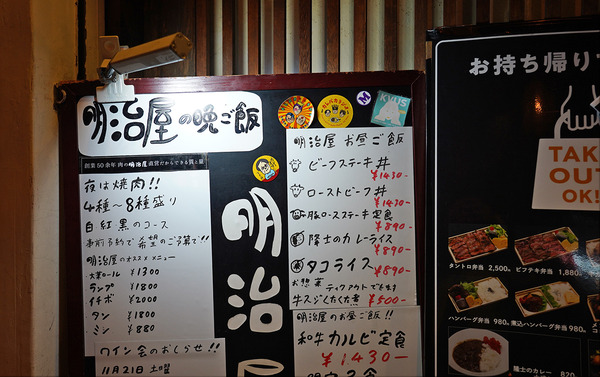 明治屋の晩ご飯
創業50余年 肉の明治屋 直営だからできる質と量
夜は焼肉!!
4種〜8種盛り
白 紅 黒 のコース
事前予約で希望のご予算で!!
明治屋のオススメメニュー
大葉ロール ¥1300
ランプ ¥1800
イチボ ¥2000
タン ¥1800
ミン ¥880
ワイン会のおしらせ!!
11月21日 土曜
明治
KYUS
M
明治屋 お昼ご飯
ビーフステーキ丼
¥1430-
ローストビーフ丼
¥1430-
豚ロースステーキ定食
¥890-
隆士のカレーライス
¥890-
タコライス
¥890-
お惣菜 テイクアウトできます
牛スジくたくた煮 ¥500-
明治屋のお昼ご飯!!
和牛カルビ定食
¥1430-
お持ち帰り
TAKE
OUT
OK!
タントロ弁当 2,500円
ビフテキ弁当 1,880
ハンバーグ弁当 980円
煮込ハンバーグ弁当 980円
隆士のカレー